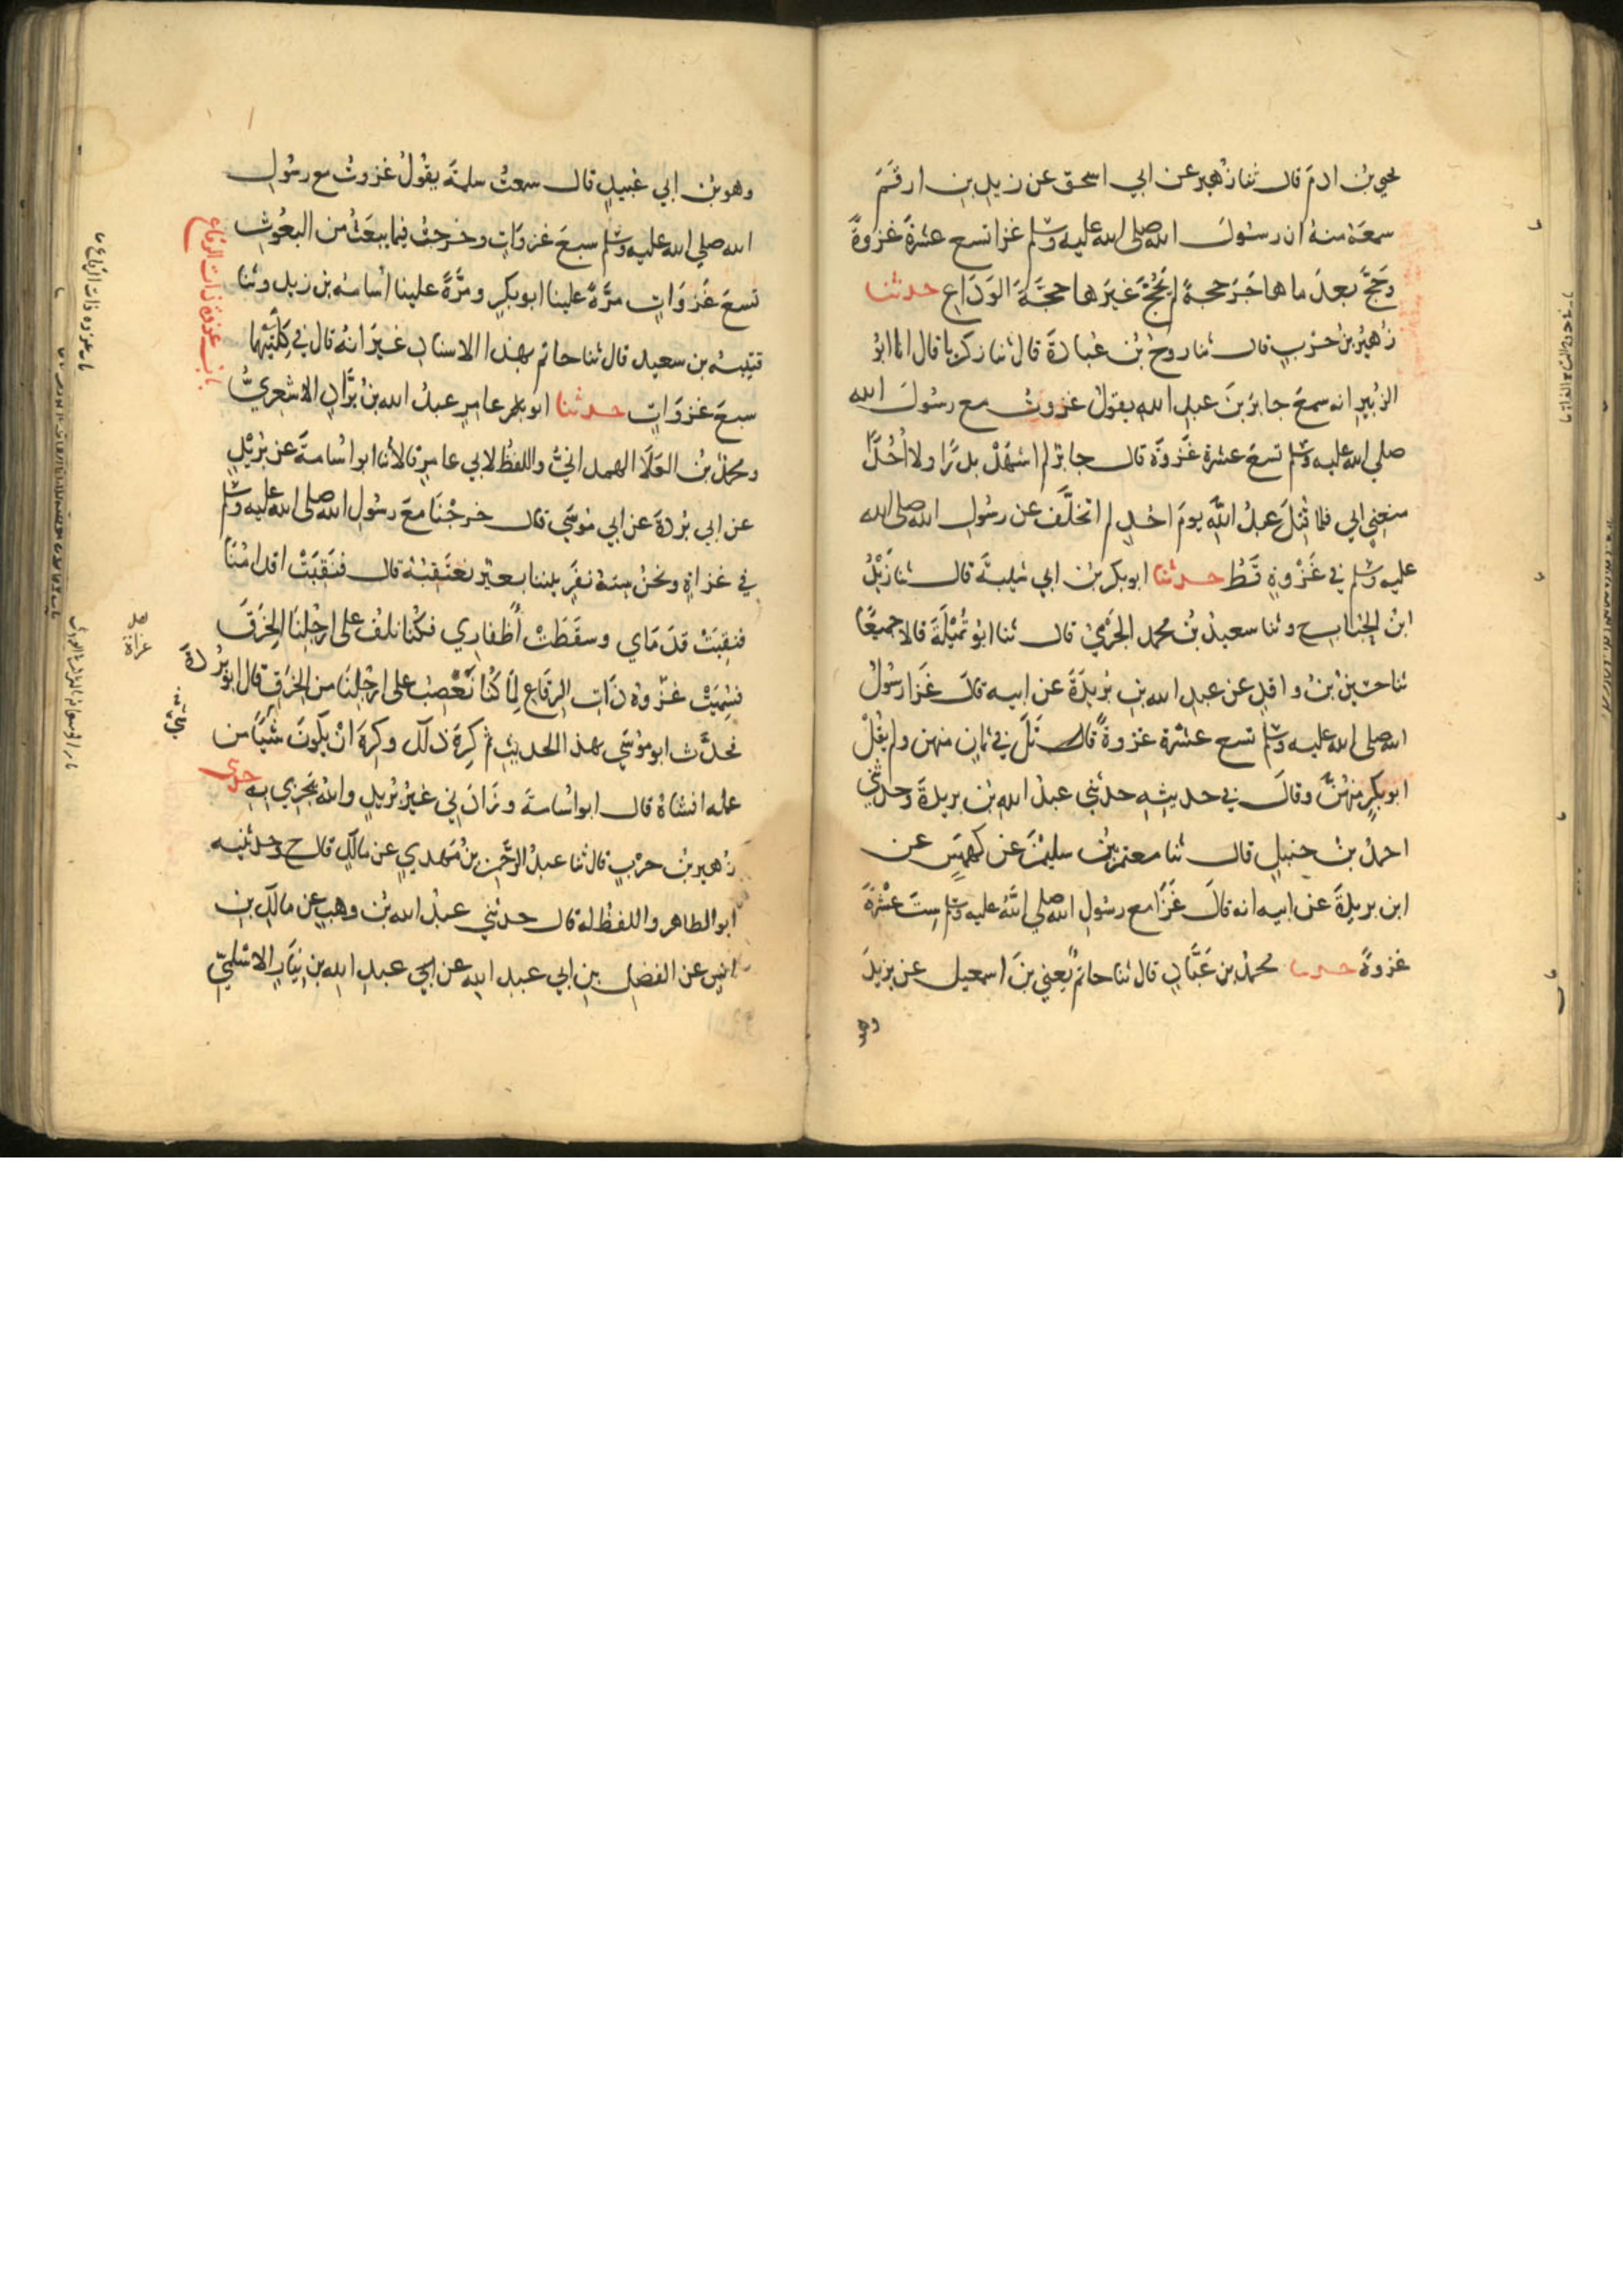 يحيي بن ادم قال ثنا زهير عن ابي اسحق عن زيد بن ارقم
سمعه منه ان رسول الله صلى الله عليه وسلم غزا تسع عشرة غزوة
وحج بعد ما هاجر حجة لم يحج غيرها حجة الوداع حدثنا
زهير بن حرب قال ثنا روح بن عبادة قال ثنا زكريا قال انا ابو
الزبير انه سمع جابر بن عبد الله يقول غزوت مع رسول الله
صلي الله عليه وسلم تسع عشرة غزوة قال جابر لم اشهد بدرا ولا احدا
منعني ابي فلما قتل عبد الله يوم احد لم اتخلف عن رسول الله صلى الله
عليه وسلم في غزوة قط حدثنا ابو بكر بن ابي شيبة قال ثنا زيد
ابن الحباب ح وثنا سعيد بن محمد الجرمي قال ثنا ابو تميلة قالا جميعا
ثنا حسين بن واقد عن عبد الله بن بريدة عن ابيه قال غزا رسول
الله صلى الله عليه وسلم تسع عشرة غزوة قاتل في ثمان منهن ولم يقل
ابو بكر منهن وقال في حديثه حدثني عبد الله بن بريدة وحدثني
احمد بن حنبل قال ثنا معتمر بن سليمن عن كهمس عن
ابن بريدة عن ابيه انه قال غزا مع رسول الله صلي الله عليه وسلم ست عشرة
غزوة حدثنا محمد بن عباد قال ثنا حاتم يعني بن اسمعيل عن يزيد
وهو
وهو بن ابي عبيد قال سمعت سلمة يقول غزوت مع رسول
الله صلي الله عليه وسلم سبع غزوات وخرجت فيما يبعث من البعوث
تسع غزوات مرة علينا ابو بكر ومرة علينا اسامة بن زيد وثنا
قتيبة بن سعيد قال ثنا حاتم بهذا الاسناد غير انه قال في كلتيهما
سبع غزوات حدثنا ابو عامر عبد الله بن براد الاشعري
ومحمد بن العلا الهمداني واللفظ لابي عامر قالا ثنا ابو اسامة عن بريد
عن ابي بردة عن ابي موسي قال خرجنا مع رسول الله صلى الله عليه وسلم
في غزاة ونحن ستة نفر بيننا بعير نعتقبه قال فنقبت اقدامنا
فنقبت قدماي وسقطت أظفاري فكنا نلف على ارجلنا الخرق
فسميت غزوة ذات الرقاع لما كنا نعصب على ارجلنا من الخرق قال ابو بردة
فحدث ابو موسي بهذا الحديث ثم كره ذلك وكره ان يكون شيئا من
عمله افشاه قال ابو اسامة وزادني غير بريد والله يجزي به حدثني
زهير بن حرب قال ثنا عبد الرحمن بن مهدي عن مالك قال ح وحدثنيه
ابو الطاهر واللفظ له قال حدثني عبد الله بن وهب عن مالك بن
انس عن الفضيل بن ابي عبد الله عن عبد الله بن نيار الاسلمي
باب غزوة ذات الرقاع
باب غزوه ذات الرقاع
غزاة